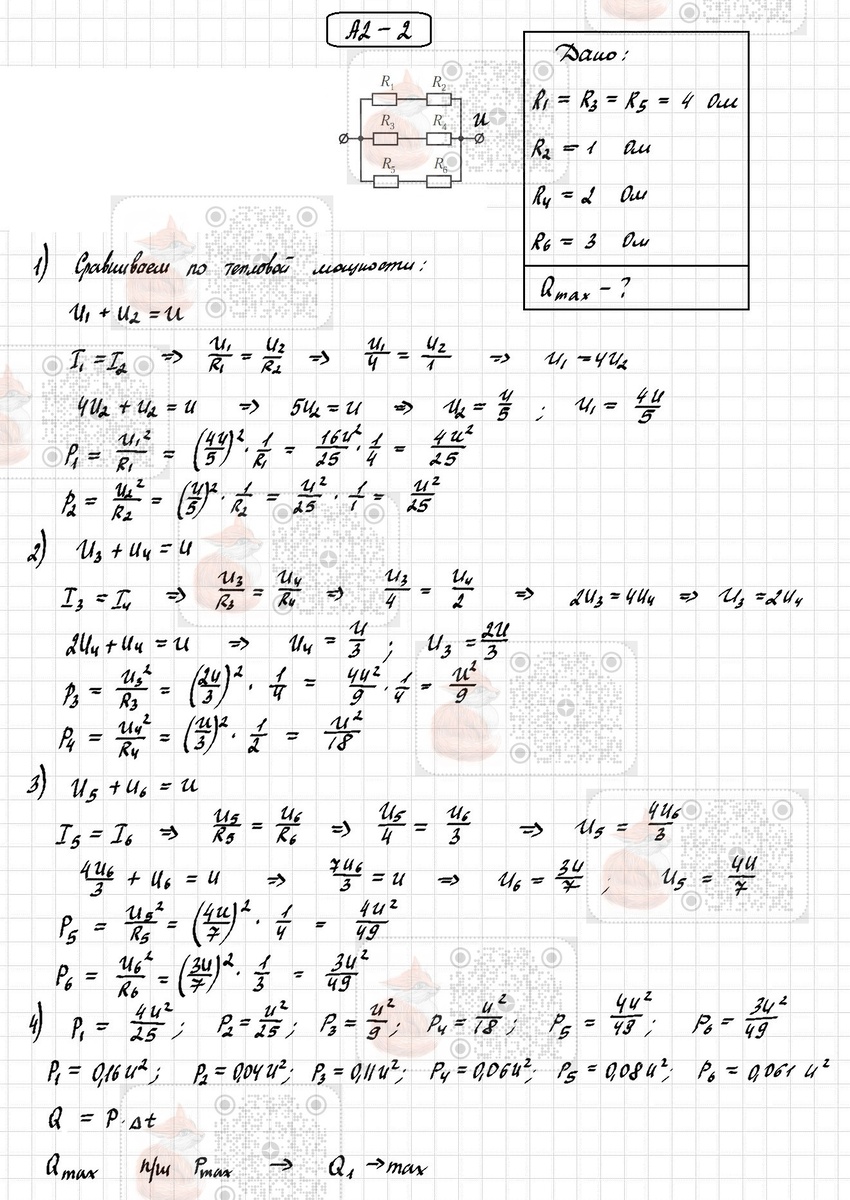 A2 – 2
R₁ R₂
R₃ R₄ U
R₅ R₆
Дано:
R₁ = R₃ = R₅ = 4 Ом
R₂ = 1 Ом
R₄ = 2 Ом
R₆ = 3 Ом
Qmax – ?
1) Сравниваем по тепловой мощности:
U₁ + U₂ = U
I₁ = I₂ => U₁/R₁ = U₂/R₂ => U₁/4 = U₂/1 => U₁ = 4U₂
4U₂ + U₂ = U => 5U₂ = U => U₂ = U/5 ; U₁ = 4U/5
P₁ = U₁²/R₁ = (4U/5)² · 1/R₁ = 16U²/25 · 1/4 = 4U²/25
P₂ = U₂²/R₂ = (U/5)² · 1/R₂ = U²/25 · 1/1 = U²/25
2) U₃ + U₄ = U
I₃ = I₄ => U₃/R₃ = U₄/R₄ => U₃/4 = U₄/2 => 2U₃ = 4U₄ => U₃ = 2U₄
2U₄ + U₄ = U => U₄ = U/3 ; U₃ = 2U/3
P₃ = U₃²/R₃ = (2U/3)² · 1/4 = 4U²/9 · 1/4 = U²/9
P₄ = U₄²/R₄ = (U/3)² · 1/2 = U²/18
3) U₅ + U₆ = U
I₅ = I₆ => U₅/R₅ = U₆/R₆ => U₅/4 = U₆/3 => U₅ = 4U₆/3
4U₆/3 + U₆ = U => 7U₆/3 = U => U₆ = 3U/7 ; U₅ = 4U/7
P₅ = U₅²/R₅ = (4U/7)² · 1/4 = 4U²/49
P₆ = U₆²/R₆ = (3U/7)² · 1/3 = 3U²/49
4) P₁ = 4U²/25 ; P₂ = U²/25 ; P₃ = U²/9 ; P₄ = U²/18 ; P₅ = 4U²/49 ; P₆ = 3U²/49
P₁ = 0,16U² ; P₂ = 0,04U² ; P₃ = 0,11U² ; P₄ = 0,06U² ; P₅ = 0,08U² ; P₆ = 0,061 U²
Q = P · Δt
Qmax при Pmax → Q₁ → max